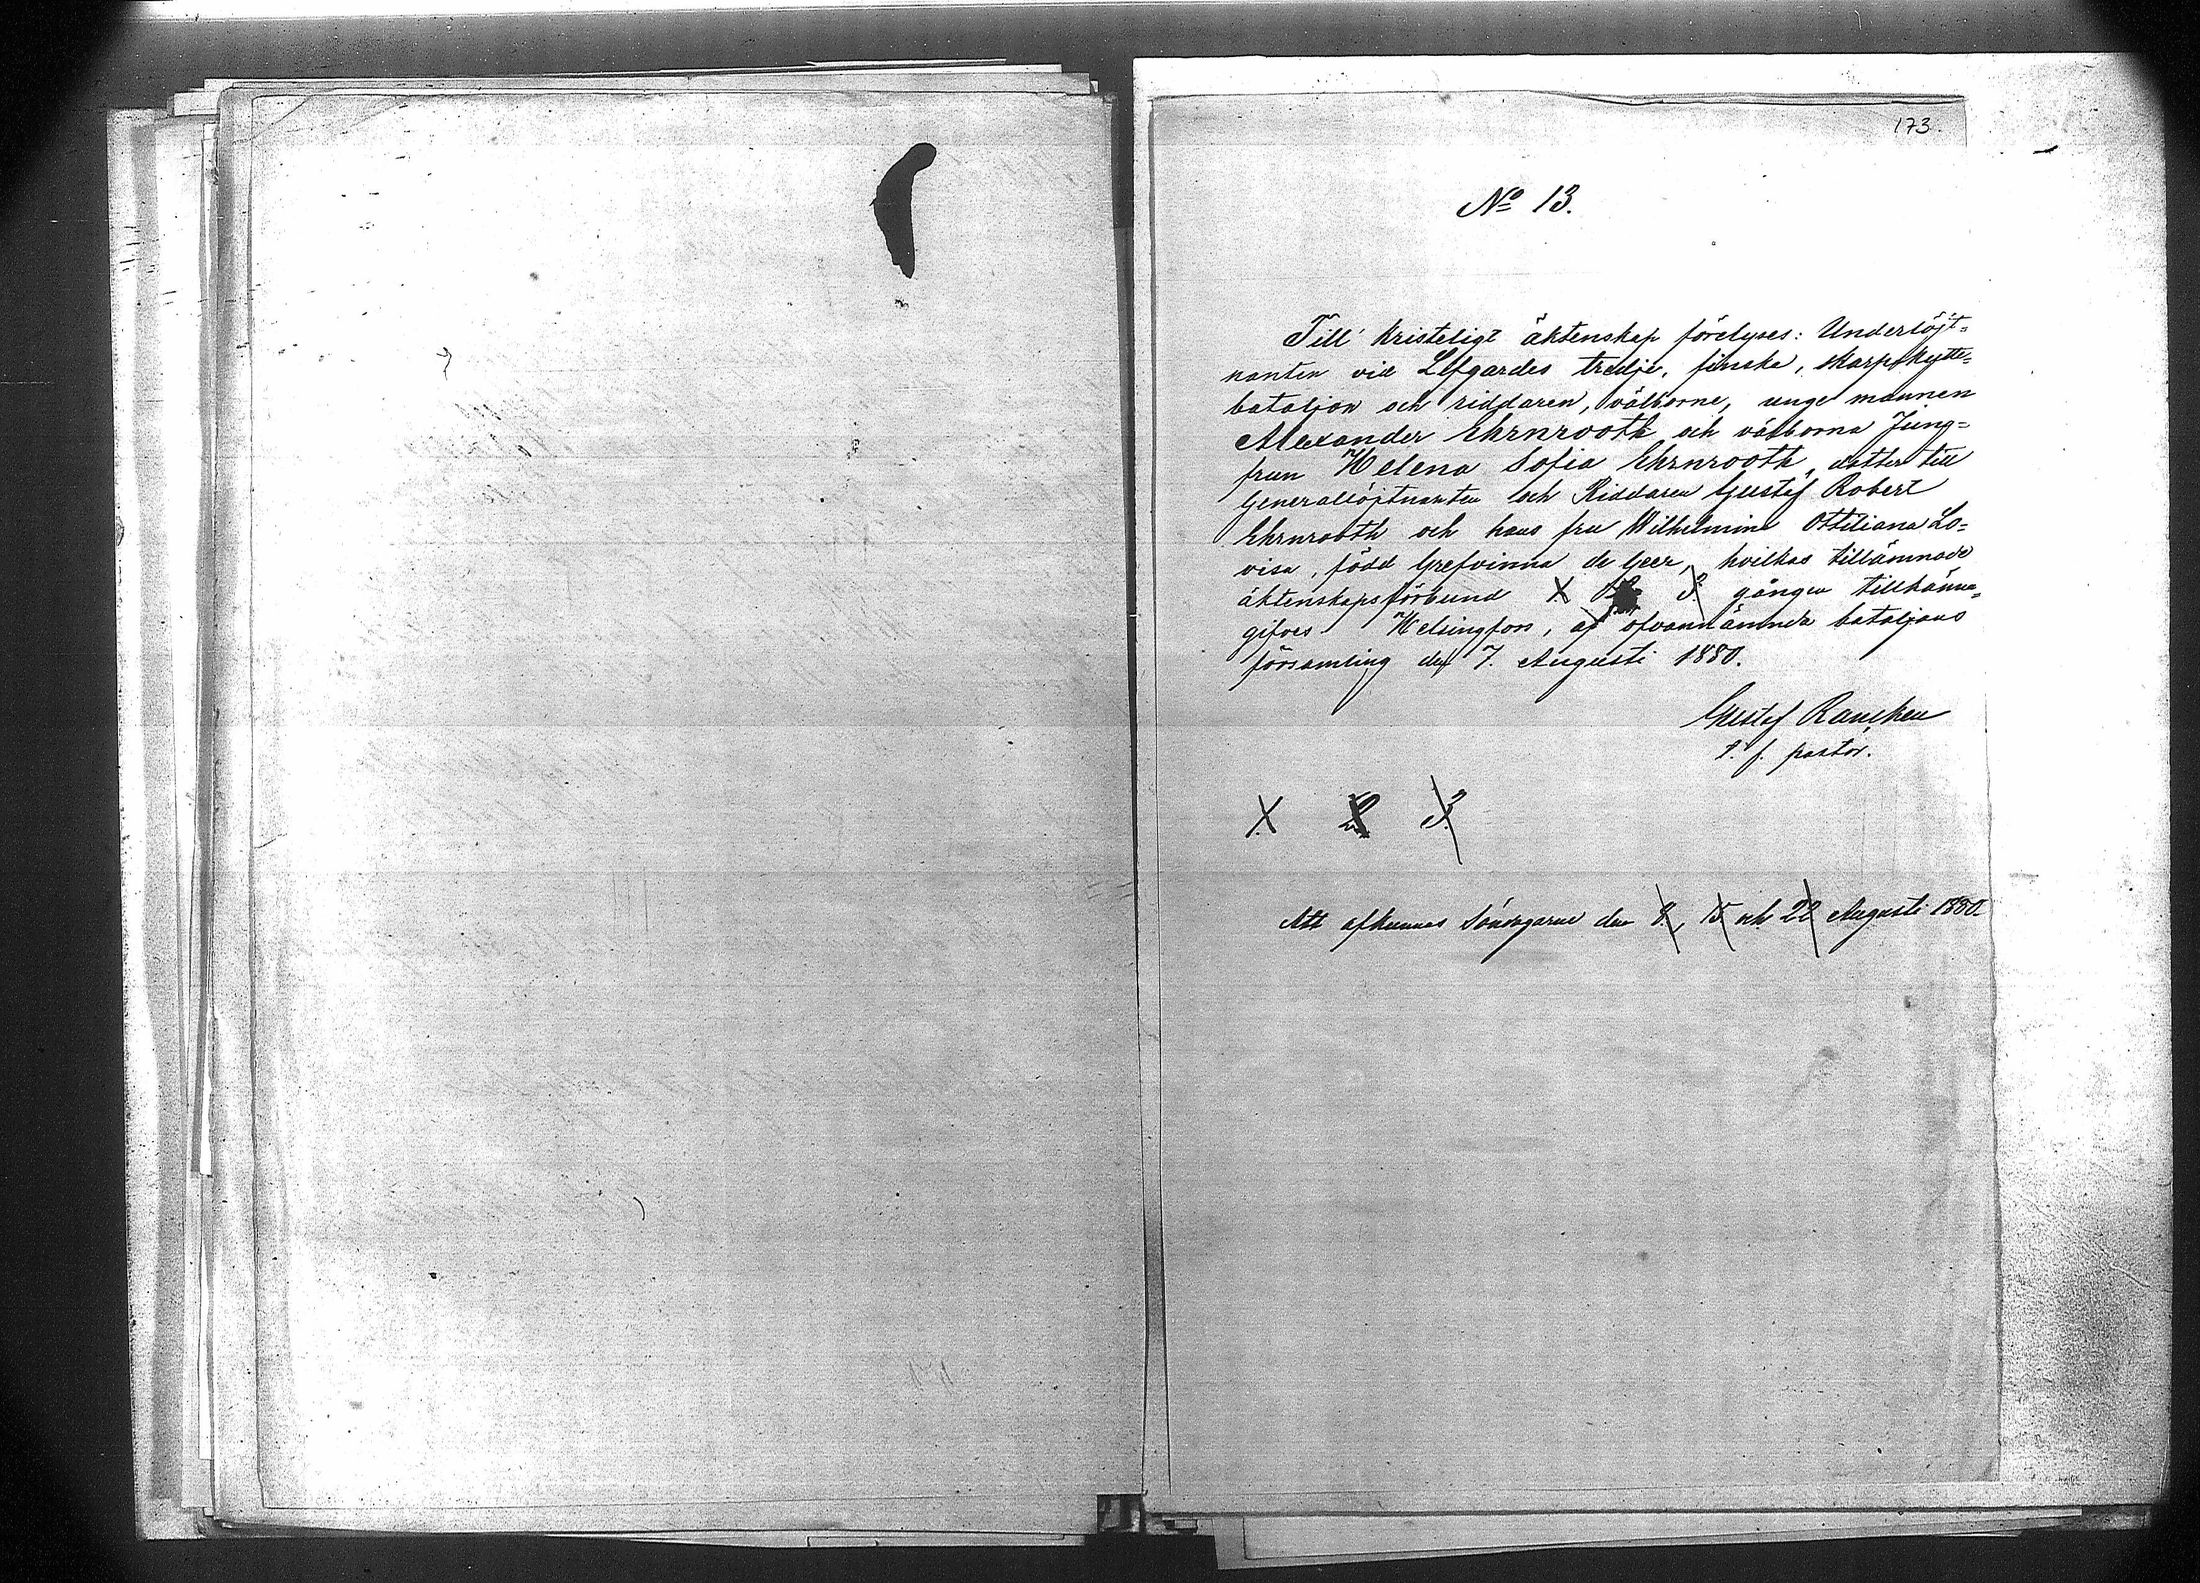 173.
No 13.
Till kristeligt äktenskap förelyses: Underlöjt=
nanten vid Lifgardes tredje, finska, skarpskytte=
bataljon och riddaren, välborne, unge mannen
Alexander Ehrnrooth och välborna Jung=
frun Helena Sofia Ehrnrooth, dotter till
Generallöjtnanten och Riddaren Gustaf Robert
Ehrnrooth och hans fru Wilhelmina Ottiliana Lo=
visa, född Grefvinna de Geer, hvilkas tillämnade
äktenskapsförbund 1. 2. 3. gången tillkänna=
gifves Helsingfors, af ofvannämnda bataljons
församling den 7. Augusti 1880.
Gustaf
t. f. pastor.
1. 2. 3.
Att afkunnas Söndagarne den 8., 15 och 22 Augusti 1880.